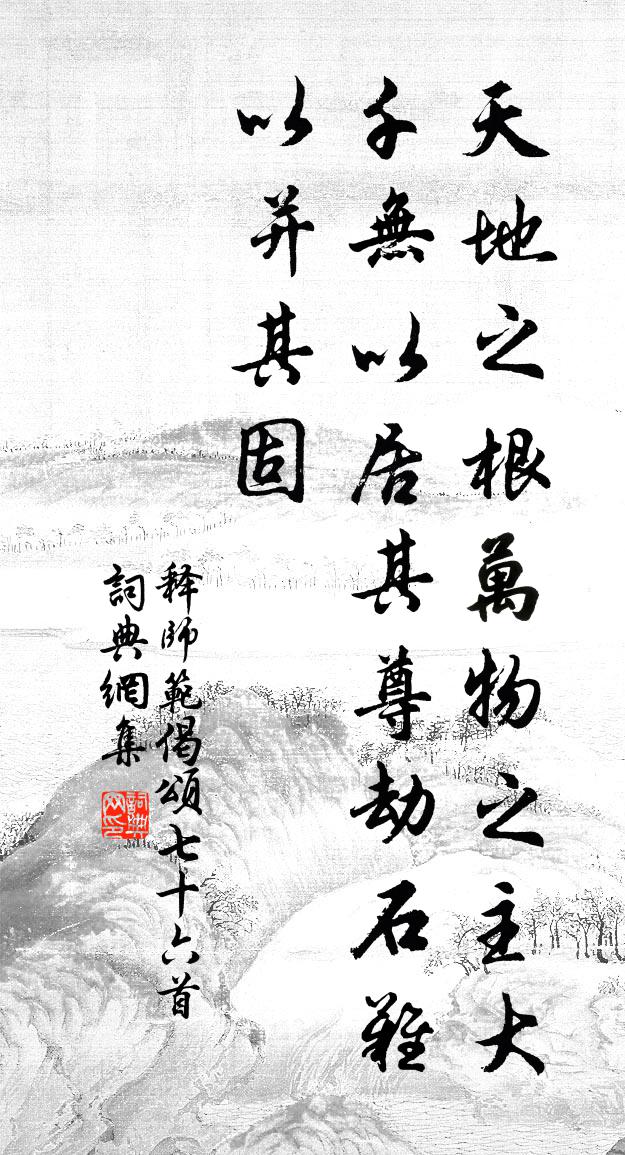 天地之根萬物之主大
千無以居其尊劫石難
以并其固
释師範偈頌七十六首
詞典網集
詞典
网印